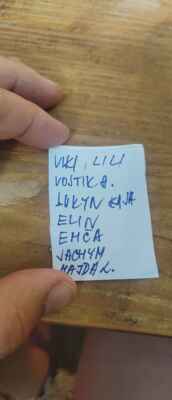 VIKI, LILI
VOSTIK A.
LUKYN KAJA
ELIN
EMČA
JACHYM
MAJDA L.